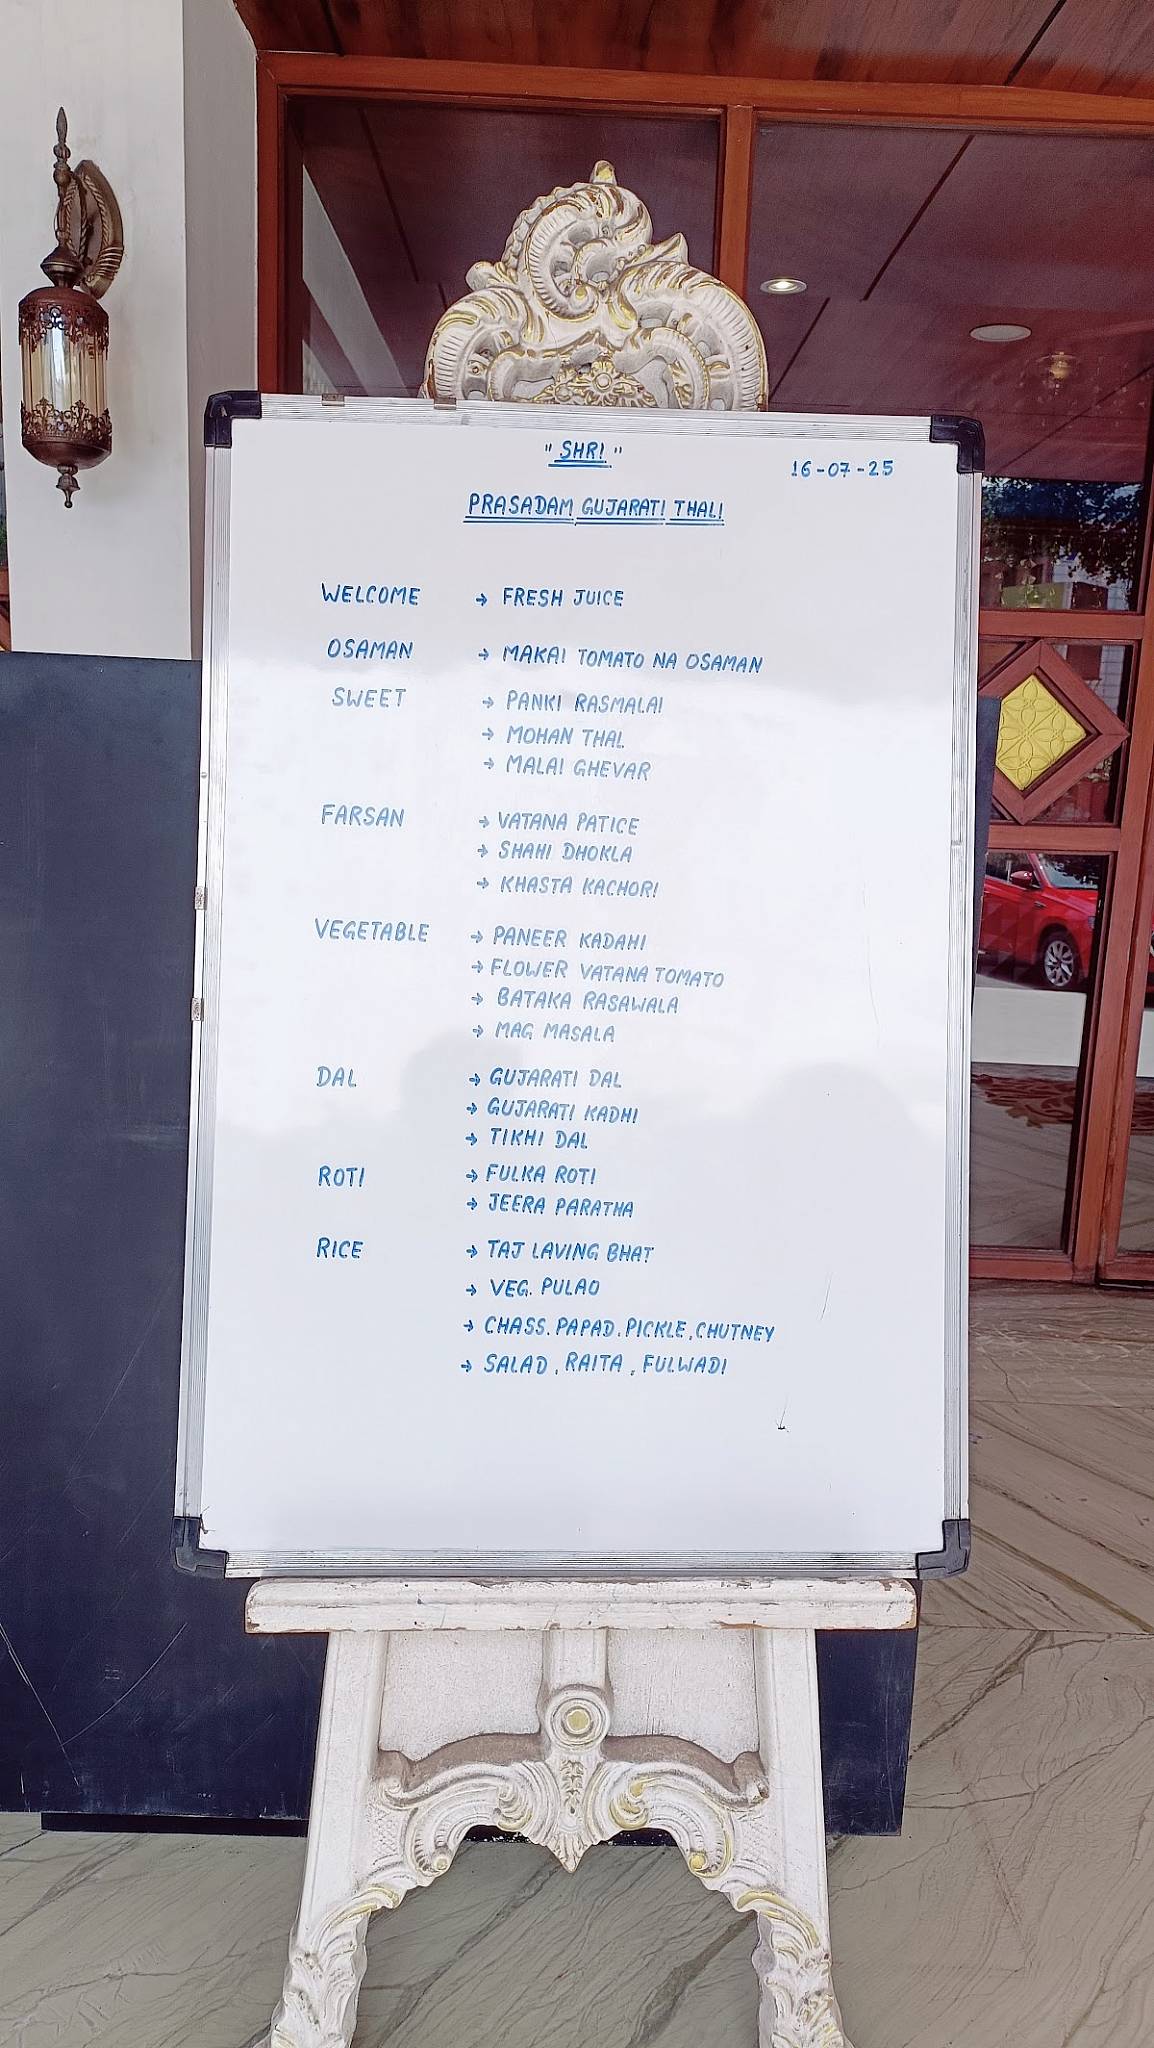 " SHRI "
16-07-25
PRASADAM GUJARATI THALI
WELCOME → FRESH JUICE
OSAMAN → MAKAI TOMATO NA OSAMAN
SWEET → PANKI RASMALAI
→ MOHAN THAL
→ MALAI GHEVAR
FARSAN → VATANA PATICE
→ SHAHI DHOKLA
→ KHASTA KACHORI
VEGETABLE → PANEER KADAHI
→ FLOWER VATANA TOMATO
→ BATAKA RASAWALA
→ MAG MASALA
DAL → GUJARATI DAL
→ GUJARATI KADHI
→ TIKHI DAL
ROTI → FULKA ROTI
→ JEERA PARATHA
RICE → TAJ LAVING BHAT
→ VEG. PULAO
→ CHASS. PAPAD. PICKLE, CHUTNEY
→ SALAD, RAITA, FULWADI